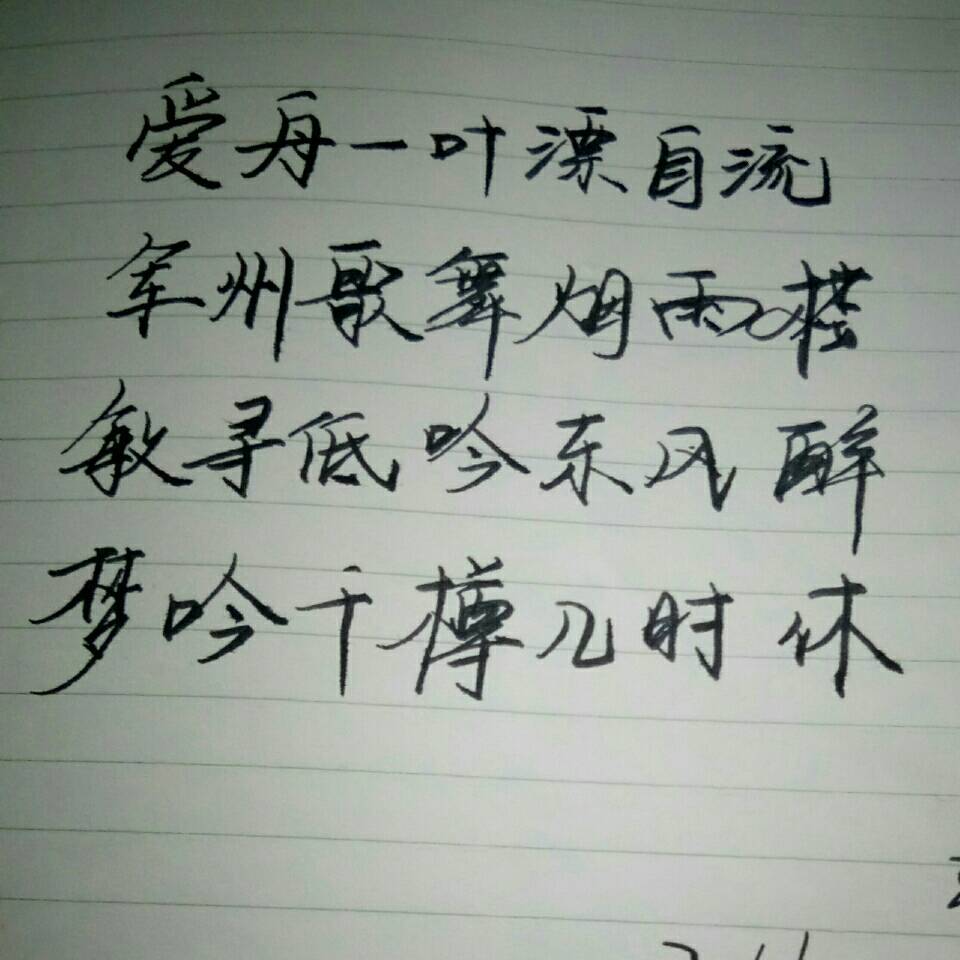 爱舟一叶漂自流
军州歌舞烟雨楼
敏寻低吟东风醉
梦吟千樽几时休